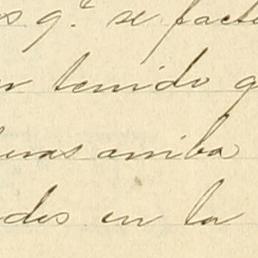 os q.e se fact
er tenido q
arriba
dos en la